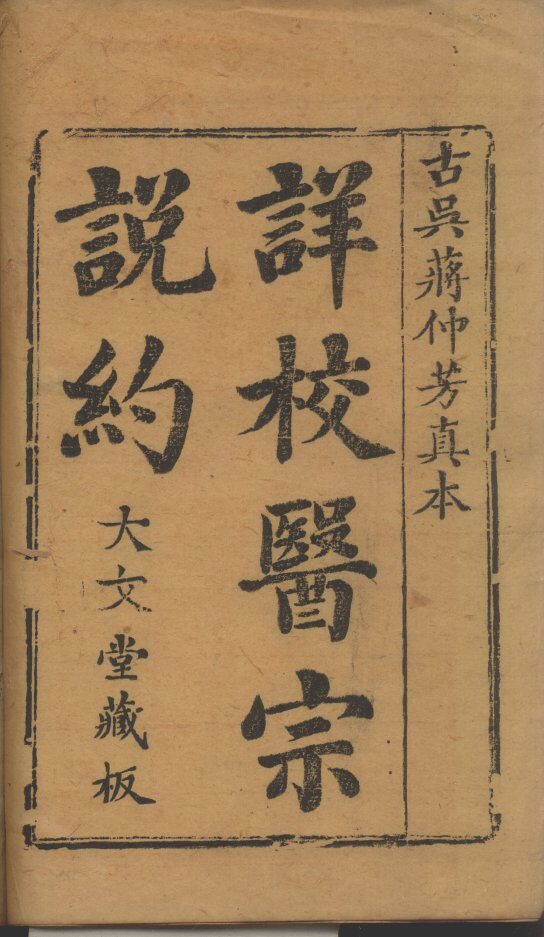 古吳蔣仲芳真本
詳校醫宗
說約
大文堂藏板